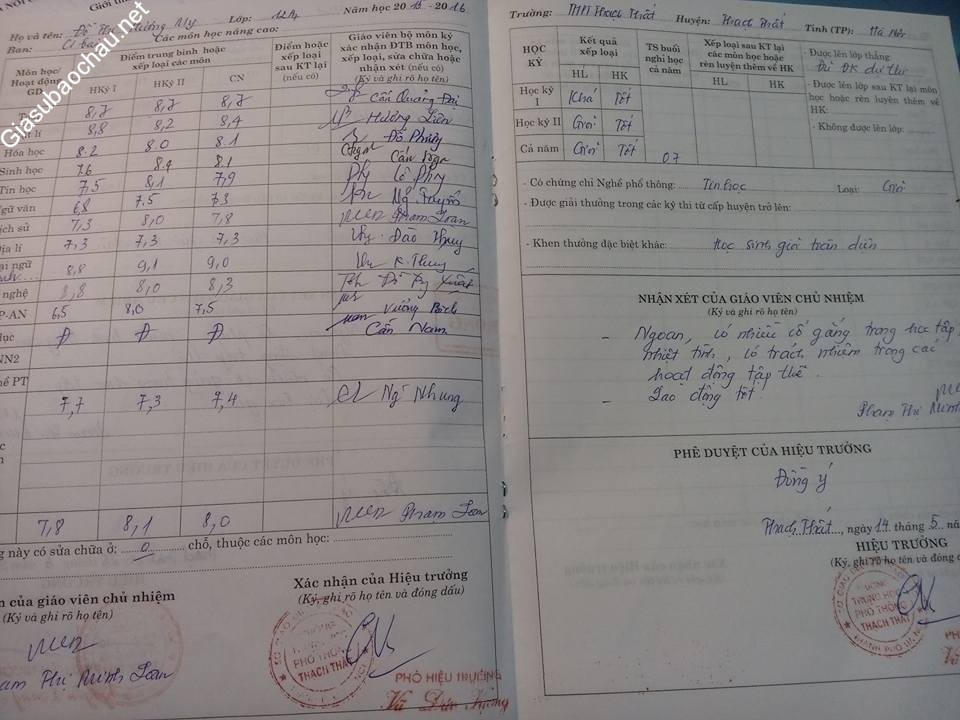 Giasubaochau.net
Họ và tên: Đỗ Thị Hương My Lớp: 12A4 Năm học 2015 - 2016
Ban: Cơ bản Các môn học nâng cao:
Môn học/ Hoạt động GD
Điểm trung bình hoặc xếp loại các môn
HKỳ I HKỳ II CN
Điểm hoặc xếp loại sau KT lại (nếu có)
Giáo viên bộ môn ký xác nhận ĐTB môn học, xếp loại, sửa chữa hoặc nhận xét (nếu có)
(Ký và ghi rõ họ tên)
8,7 8,7 8,7 Cấn Quang Đại
8,8 8,2 8,4 Hương Liên
Hóa học 8.2 8.0 8.1 Đỗ Phượng
Sinh học 7.6 8.4 8.1 Cấn Nga
Tin học 7,5 8,1 7,9
Ngữ văn 6,8 7,5 7,3
ịch sử 7,3 8,0 7,8 Phạm Loan
ịa lí 7,3 7,3 7,3 Đào Thuy
ại ngữ 8,8 9,1 9,0 K. Thuy
nghệ 8,8 8,0 8,3
P-AN 6,5 8,0 7,5 Vương Bích
dục Đ Đ Đ Cấn Nam
NN2
hề PT
7,7 7,3 7,4 Ng Nhung
7,8 8,1 8,0 Phạm Loan
g này có sửa chữa ở: 0 chỗ, thuộc các môn học:
n của giáo viên chủ nhiệm
(Ký và ghi rõ họ tên)
am Thị Minh Loan
Xác nhận của Hiệu trưởng
(Ký, ghi rõ họ tên và đóng dấu)
PHỔ THÔNG
THẠCH THẤT
PHÓ HIỆU TRƯỞNG
Trường: THPT Thạch Thất Huyện: Thạch Thất Tỉnh (TP): Hà Nội
HỌC KỲ
Kết quả xếp loại
HL HK
TS buổi nghỉ học cả năm
Xếp loại sau KT lại các môn học hoặc rèn luyện thêm về HK
HL HK
- Được lên lớp thẳng:
Đủ ĐK dự thi
- Được lên lớp sau KT lại môn học hoặc rèn luyện thêm về HK:
- Không được lên lớp:
Học kỳ I Khá Tốt
Học kỳ II Giỏi Tốt
Cả năm Giỏi Tốt 07
- Có chứng chỉ Nghề phổ thông: Tin học Loại: Giỏi
- Được giải thưởng trong các kỳ thi từ cấp huyện trở lên:
- Khen thưởng đặc biệt khác: Học sinh giỏi toàn diện
NHẬN XÉT CỦA GIÁO VIÊN CHỦ NHIỆM
(Ký và ghi rõ họ tên)
- Ngoan, có nhiều cố gắng trong học tập
nhiệt tình, có trách nhiệm trong các
hoạt động tập thể.
- Lao động tốt.
Phạm Thị Minh
PHÊ DUYỆT CỦA HIỆU TRƯỞNG
Đồng ý
Thạch Thất, ngày 14 tháng 5 nă
HIỆU TRƯỞNG
(Ký, ghi rõ họ tên và đóng
TRUNG HỌC
PHỔ THÔNG
THẠCH THẤT